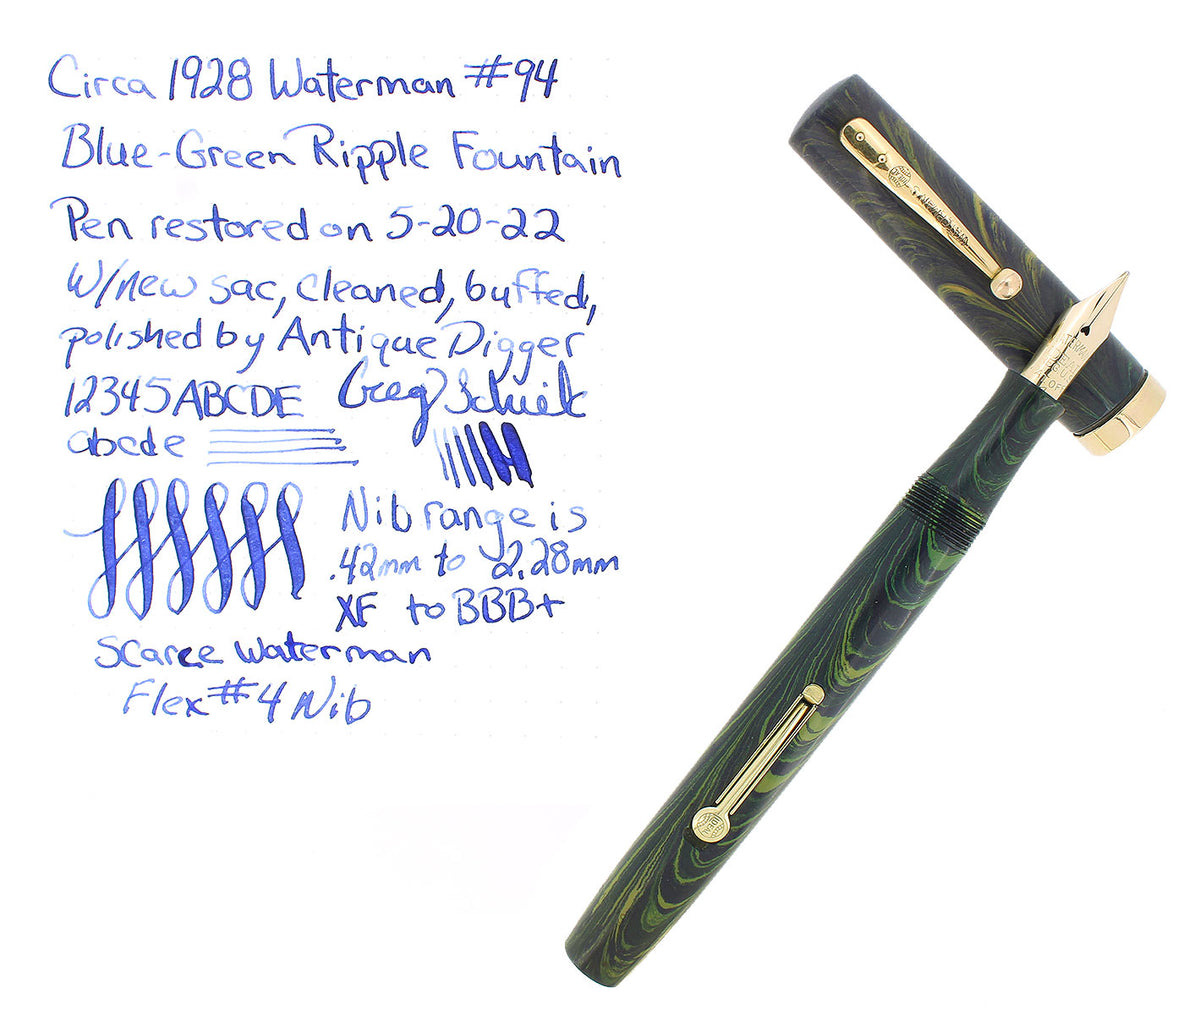 Circa 1928 Waterman #94
Blue-Green Ripple Fountain
Pen restored on 5-20-22
W/new sac, cleaned, buffed,
polished by Antique Digger
12345ABCDE
abcde
Nib range is
.42mm to 2.28mm
XF to BBB+
Scarce Waterman
Flex #4 Nib
IDEAL